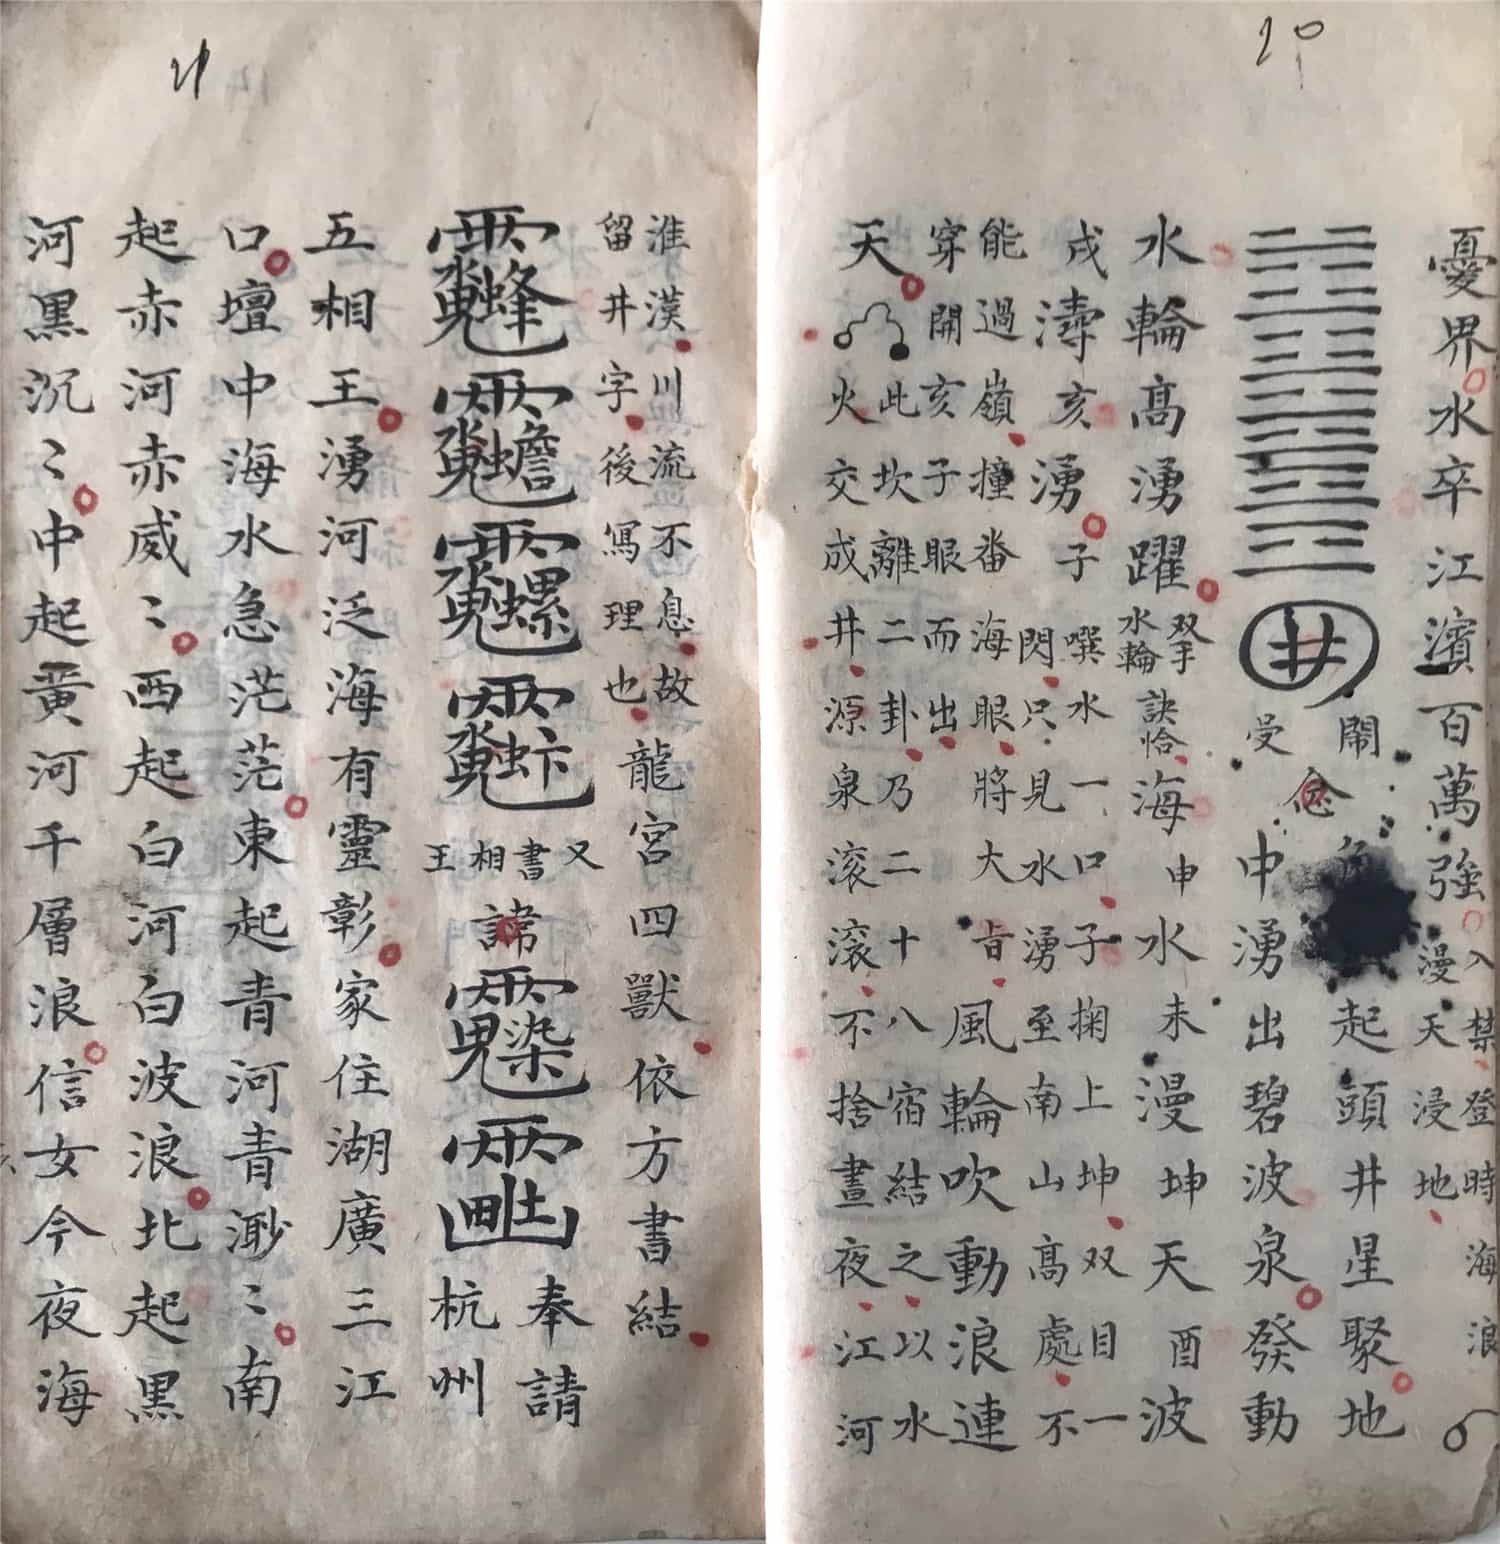 20
憂界水卒江濱百萬強
入禁登時海浪
漫天浸地
井
鬧
受
念
起頭井星聚地
中湧出碧波泉發動
水輪高湧躍
双手
水輪
訣恰
海申水未漫坤天酉波
戌濤亥湧子
噀水一口子掬上坤双目一
閃只見水湧至南山高處不
能過嶺撞畨海眼將大㫖
穿開亥子眼而出
風輪吹動浪連
天
此坎離二卦乃二十八宿結之以水
火交成井源泉滾滾不捨晝夜江河
21
淮漢川流不息故
留井字後寫理也
龍宮四獸依方書結
又書相王
諱
奉請
杭州
五相王湧河泛海有靈彰家住湖廣三江
口壇中海水急茫茫東起青河青渺〻南
起赤河赤威〻西起白河白波浪北起黑
河黑沉〻中起黃河千層浪信女今夜海